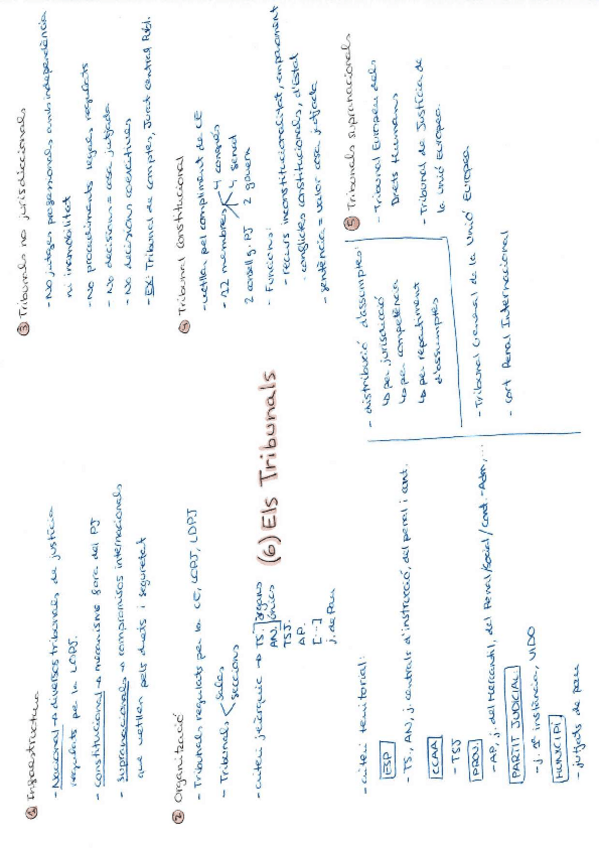 (6) Els Tribunals
① Infraestructura
- Nacional → diversos tribunals de justícia
regulats per la LOPJ.
- Constitucional → mecanisme fora del PJ
- Supranacionals → compromisos internacionals
que vetllen pels drets i seguretat
② Organització
- Tribunals regulats per la CE, LOPJ, LDPJ
- Tribunals < sales
seccions
- criteri jeràrquic → TS. òrgans
AN. únics
TSJ.
AP.
[...]
j. de Pau
- criteri territorial:
ESP
- TS, AN, j. centrals d'instrucció, del penal i cont.
CCAA
- TSJ
PROV
- AP, j. del Mercantil, del Penal/Social/Cont.-Adm,...
PARTIT JUDICIAL
- j. 1ª instància, VIDO
MUNICIPI
- jutjats de pau
- distribució d'assumptes:
↳ per jurisdicció
↳ per competència
↳ per repartiment
d'assumptes
③ Tribunals no jurisdiccionals
- No jutges professionals amb independència
ni inamobilitat
- No procediments legals regulats
- No decisions = cosa jutjada
- No decisions coercitives
- EX: Tribunal de comptes, Jurat central Publ.
④ Tribunal constitucional
- vetlla pel compliment de CE
- 12 membres 4 congrés
4 senat
2 consell g. PJ 2 govern
- Funcions:
- recurs inconstitucionalitat, emparament
- conflictes constitucionals, d'Estat
- sentència = valor cosa jutjada
⑤ Tribunals supranacionals
- Tribunal Europeu dels
Drets Humans
- Tribunal de Justícia de
la Unió Europea
- Tribunal General de la Unió Europea
- Cort Penal Internacional